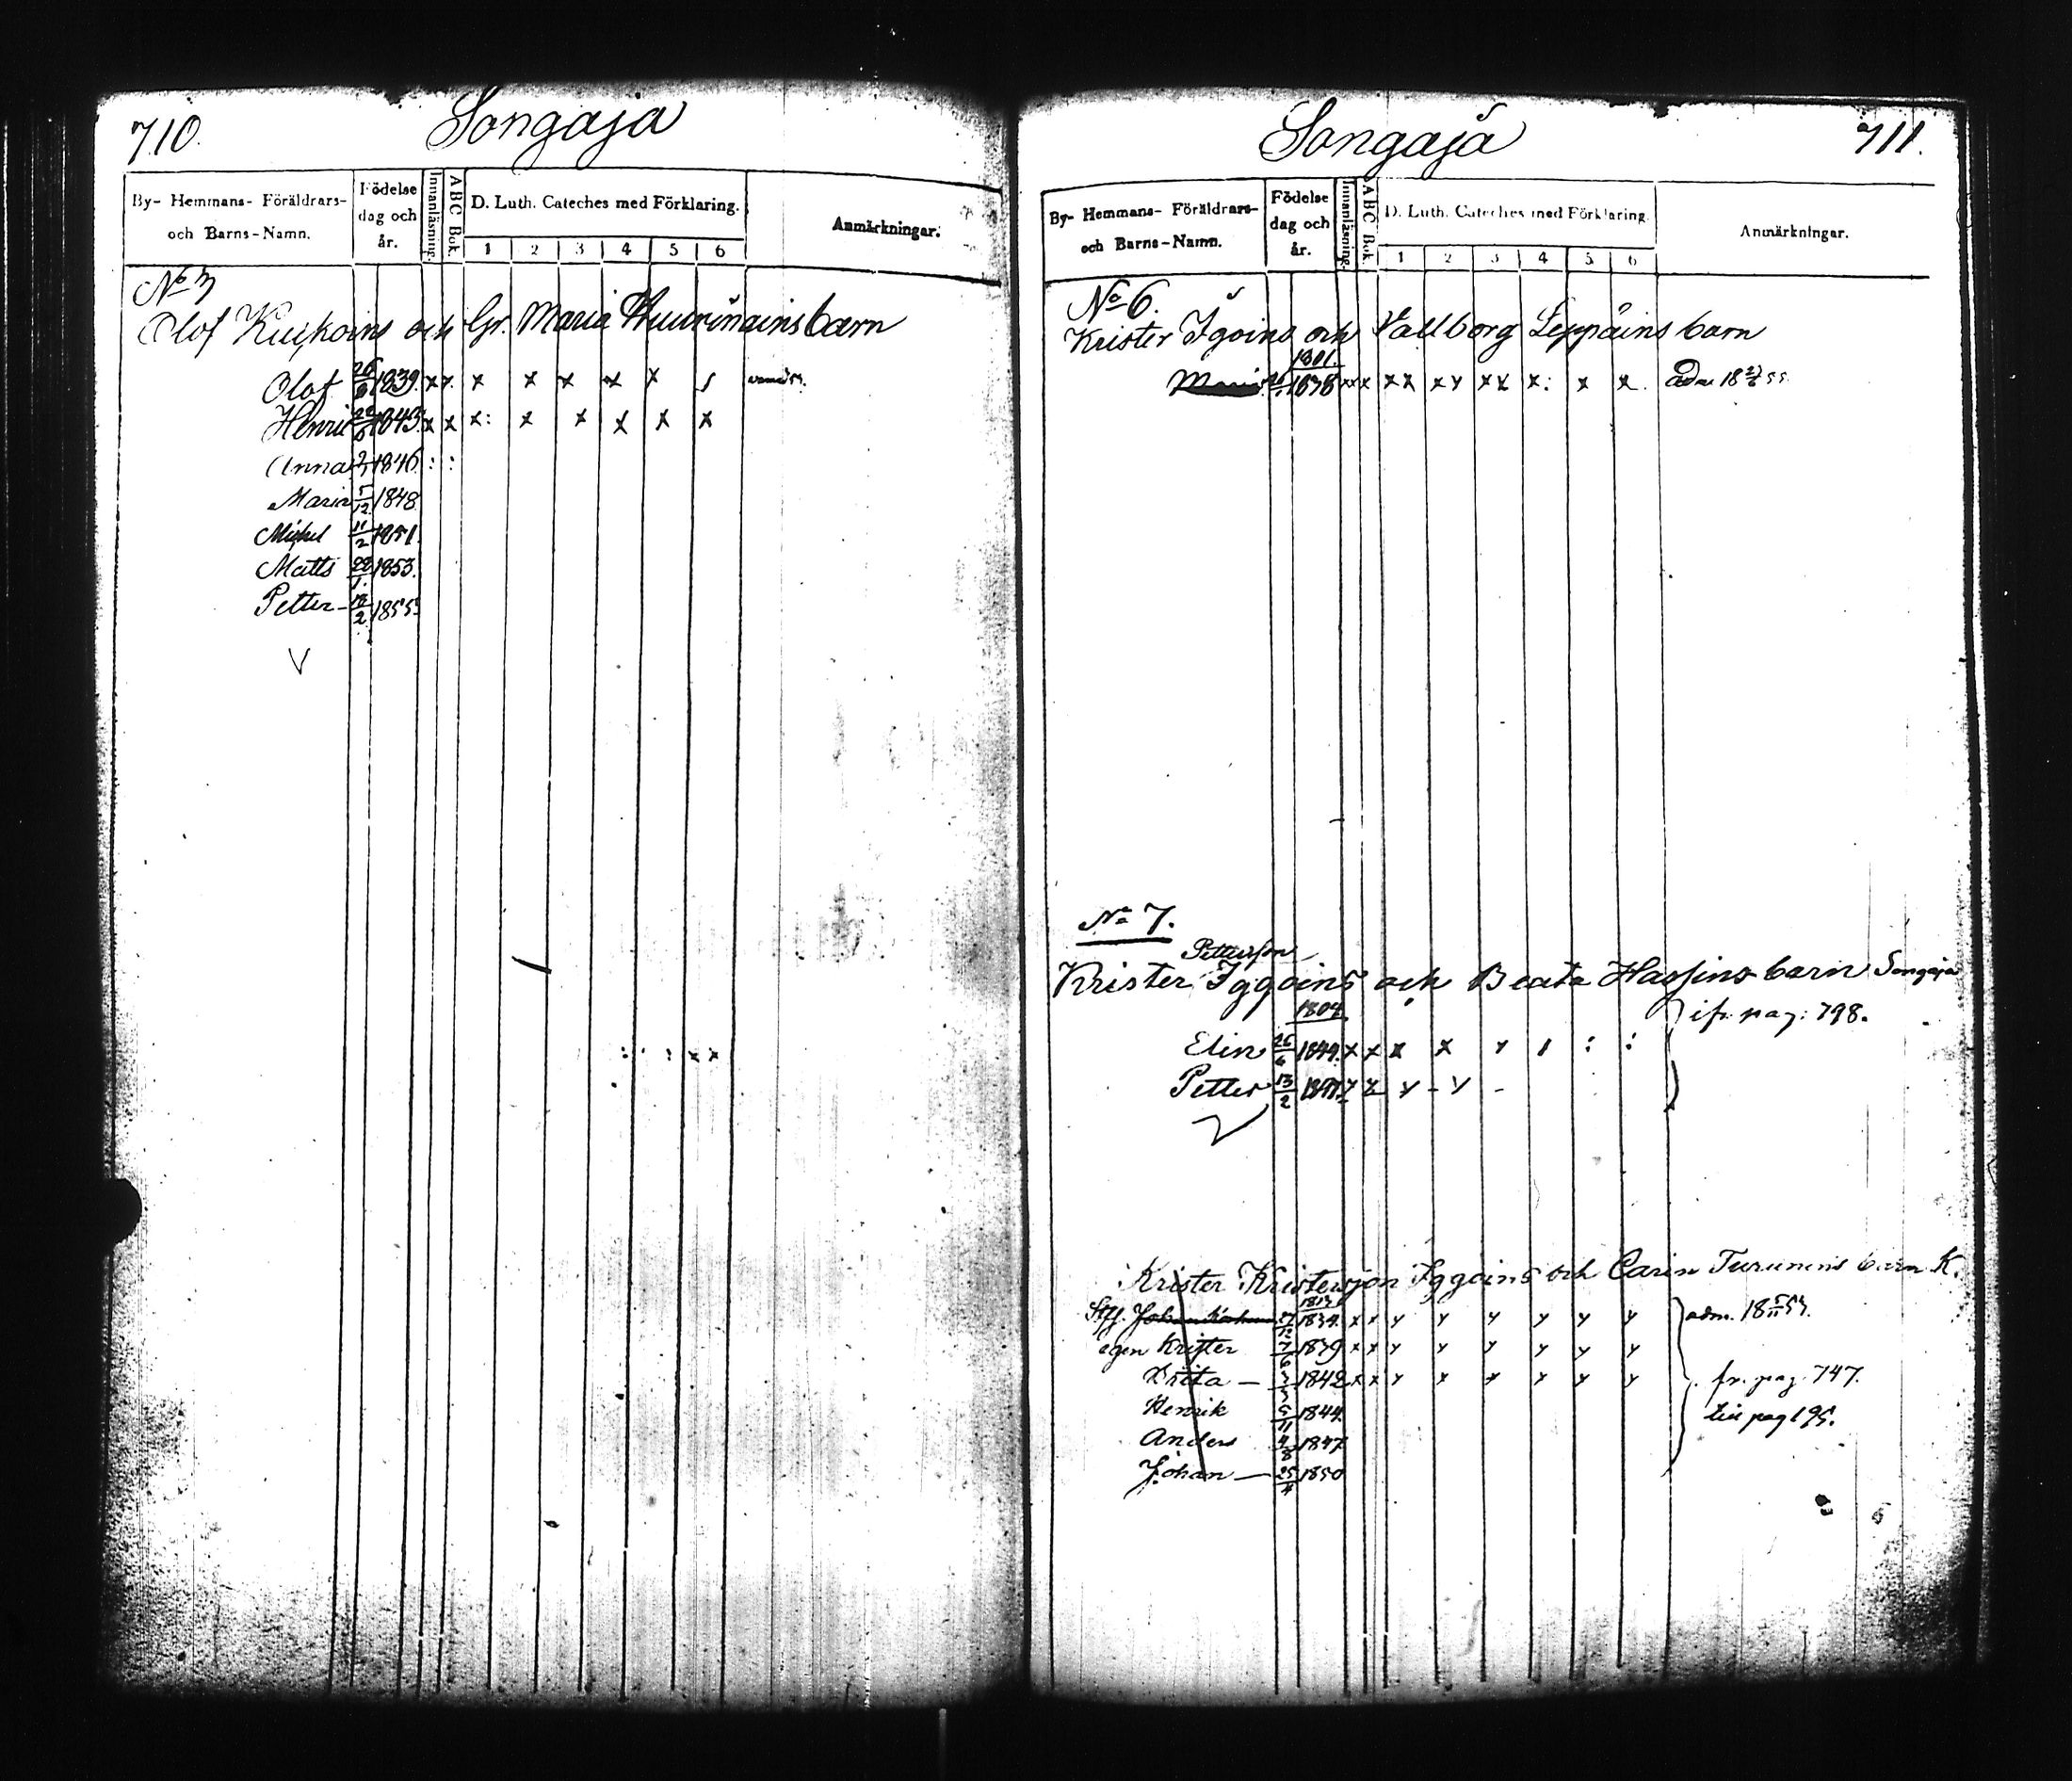 710.
Songaja
By- Hemmans- Föräldrars- och Barns-Namn.
Födelse dag och år.
Innanläsning.
ABC Bok.
D. Luth. Cateches med Förklaring.
1 2 3 4 5 6
Anmärkningar.
No 3
Olof och Gr. Maria barn
Olof 26/6 1839. x x x x x x x
Henric 1843. x x x: x x x x x
Anna 1846 : :
Maria 5/12 1848
Michel 11/2 1851.
Matts 22/1 1853.
Petter — 1855.
: : x x
711.
Songaja
By- Hemmans- Föräldrars- och Barns-Namn.
Födelse dag och år.
Innanläsning.
ABC Bok.
D. Luth. Cateches med Förklaring.
1 2 3 4 5 6
Anmärkningar.
No 6.
Krister Igoins och Vallborg Leppäins barn
1801.
Maria 1838 xx x xx xy xx x: x x.
No 7.
Pettersson
Krister Iggoins och Beata Hassins barn Songaja
1804.
ifr. pag: 798.
Elin 26/6 1844. x x x x y : :
Petter 13/2
Krister Kristersson Iggoins och Carin Turunens barn K.
Stff. 1834. x x y y y y y y adm. 18
egen Krister 7/6 1839 x x y y y y y y
Brita — 1842 x x y x x y y y fr. pag. 747.
Henrik 5/11 1844. till pag 195.
Anders 4/8 1847
Johan — 25/4 1850